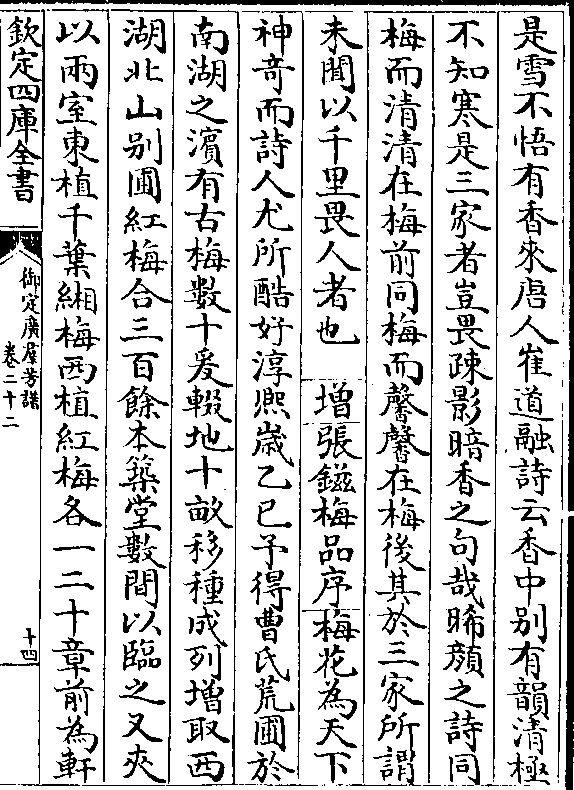 是雪不悟有香來唐人崔道融詩云香中别有韻清極
不知寒是三家者豈畏疎影暗香之句哉晞顔之詩同
梅而清清在梅前同梅而馨馨在梅後其於三家所謂
未聞以千里畏人者也 增張鎡梅品序梅花為天下
神竒而詩人尤所酷好淳熈歳乙巳予得曹氏荒圃於
南湖之濱有古梅數十爰輟地十畝移種成列增取西
湖北山别圃紅梅合三百餘本築堂數間以臨之又夾
以兩室東植千葉緗梅西植紅梅各一二十章前為軒
欽定四庫全書
御定廣羣芳譜
卷二十二
十四